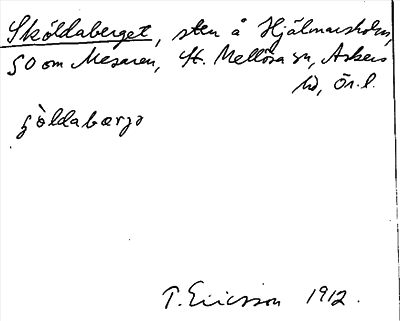 Sköldaberget, sten å Hjälmarsholm,
SO om Mesaren, St. Mellösa sn, Askers
hd, Ör. l.
ʃòldabærjə
T. Ericsson 1912.